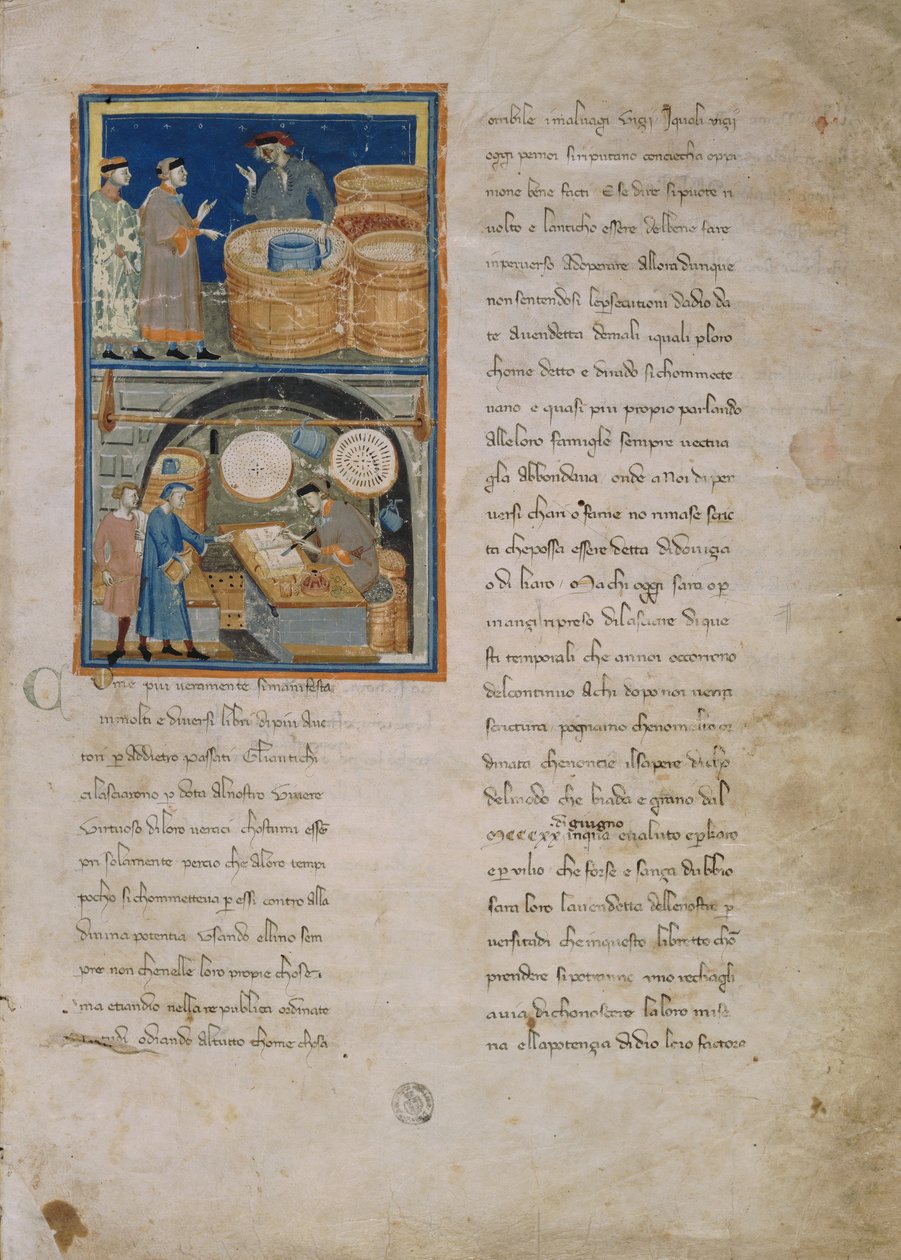 Come piu veramente simanifesta
inmolti e diversi libri dipiu Auc
tori p addietro passati Gliantichi
cilasciarono p dota alnostro vivere
virtuoso diloro veraci chostumi essẽ
pri solamente percio che alloro tempi
pocho sichommetteva p essi contro alla
divina potentia Usando ellino sem
pre non chenelle loro propie chose
ma etiandio nellare publica ordinate
odiando altutto chome chosa
orribile imalvagi vizi Iquali vizii
oggi pernoi siriputano conciecha oppi
nione bene facti E se dire sipuote ri
volto e lanticho essere delbene fare
inperverso adoperare allora dunque
nonsentendosi le psecutioni dadio da
te avendetta demali iquali ploro
chome detto e dirado sichommecte
vano e quasi piu propio parlando
alleloro famiglie sempre vectua
glia abbondava onde aNoi di per
versi chari o fame no rimase scric
ta cheposse essere detta didovizia
o di karo Ma chi oggi sara o p
inanzi inpreso dilasciare di que
sti temporali che annoi occorrono
delcontinuo achi dopo noi verra
scrictura pognamo chenom
dinata chenoncie ilsapere di
delmodo che biada e grano dal
di giugno
MCCCXX inqua evaluto e p karo
e p vilio che forse e sanza dubbio
sara loro lavendetta dellenostre p
versitadi cheinquesto libretto chõ
prendere sipotranno uno rechagli
avia dichonoscere laloro mise
ria ellapotenza didio loro factore